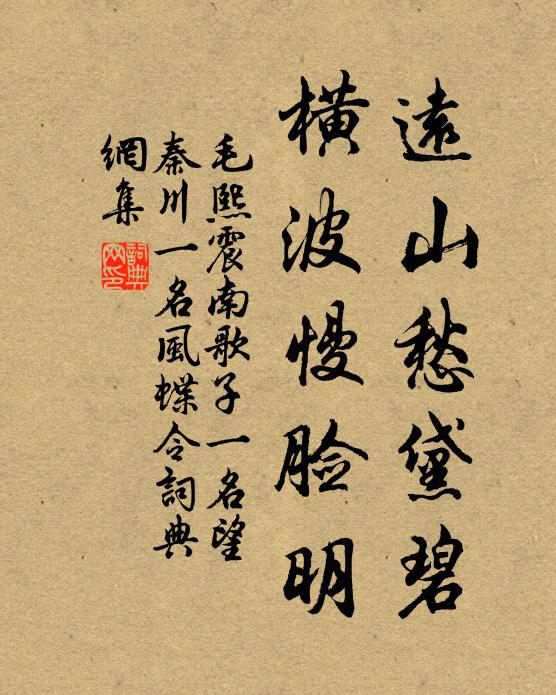 遠山愁黛碧
橫波慢脸明
毛熙震南歌子一名望
秦川一名風蝶令詞典
網集
詞典
网印